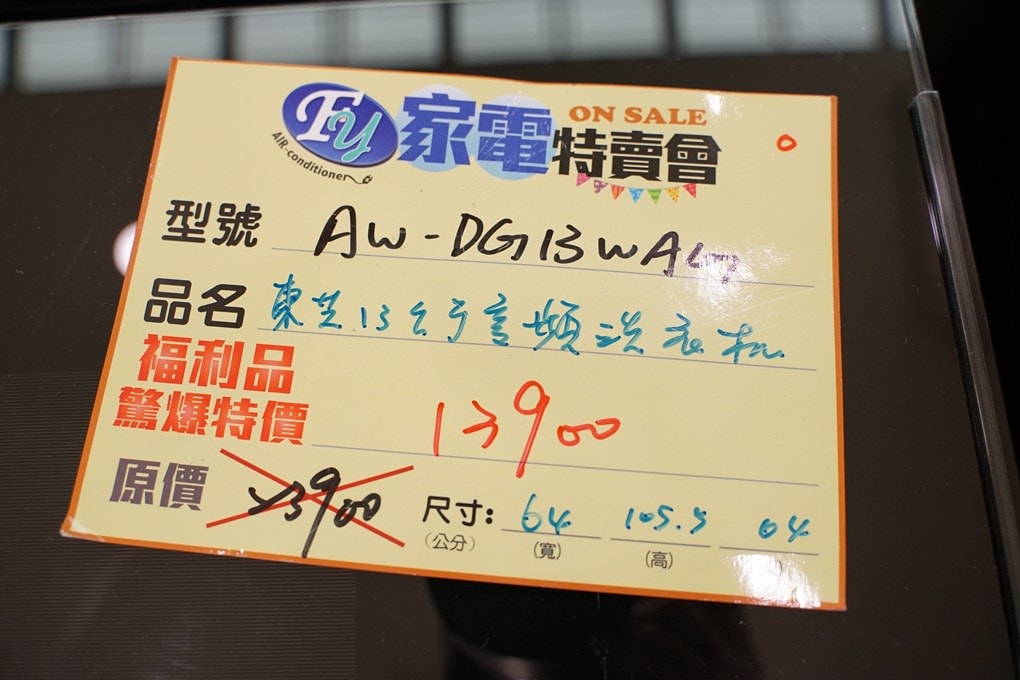 Fy 家電 ON SALE
AIR-conditioner 特賣會
型號 AW-DG13WAG
品名 東芝13公斤変頻洗衣机
福利品
驚爆特價 13900
原價 23900 尺寸: 64 105.5 64
(公分) (寬) (高)